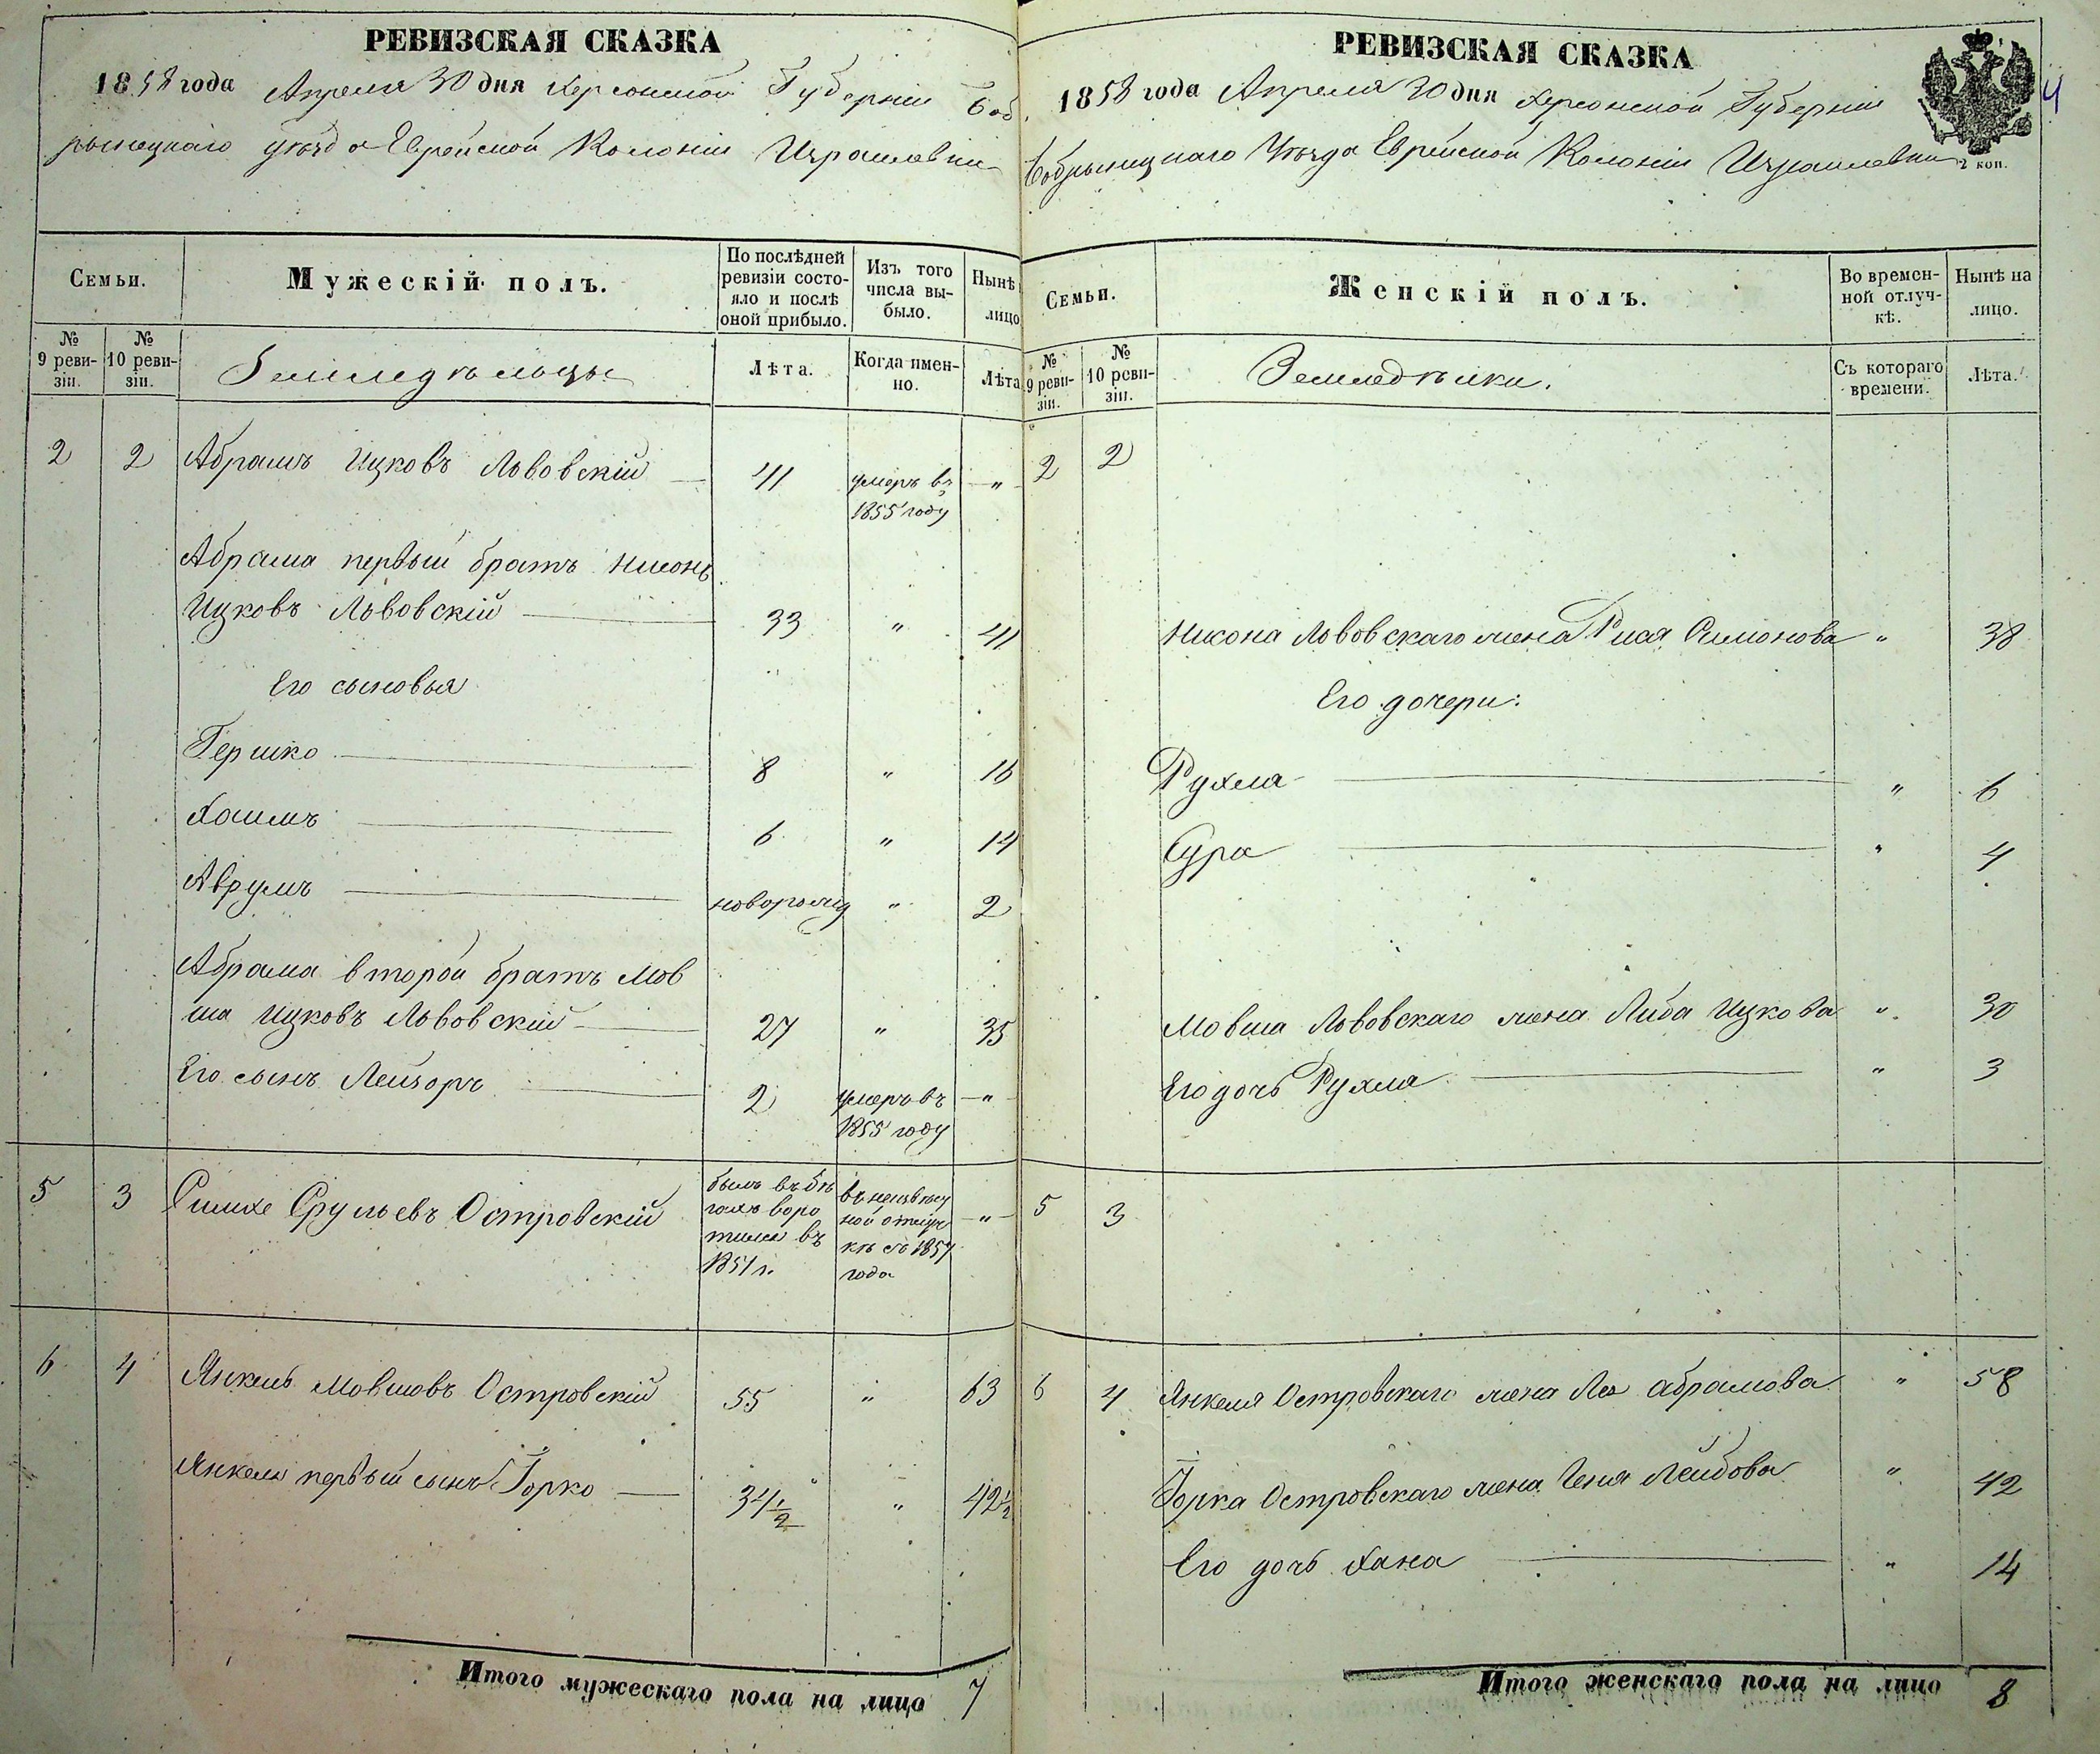 РЕВИЗСКАЯ СКАЗКА
1858 года Апреля 30 дня Херсонской Губерніи Боб
рынецкаго уѣзда Еврейской Колоніи Израилевки
Семьи.
Мужескій полъ.
По послѣдней
ревизіи состо-
яло и послѣ
оной прибыло.
Изъ того
числа вы-
было.
Нынѣ
лицо
№
9 реви-
зіи.
№
10 реви-
зіи.
Земледѣльцы
Лѣта.
Когда имен-
но.
Лѣта
2 2 Абрамъ Ицковъ Львовскій 41 умеръ въ "
1855 году
Абрама первый братъ Нисонъ
Ицковъ Львовскій 33 " 41
Его сыновья
Гершко 8 " 16
Хаимъ 6 " 14
Аврумъ новорожд " 2
Абрама второй братъ Мов
ша Ицковъ Львовскій 27 " 35
Его сынъ Лейзоръ 2 умеръ въ "
1855 году
5 3 Симхе Срульевъ Островскій былъ въ бѣ
гахъ воро
тился въ
1851 г.
въ неизвѣст
ной отлуч
кѣ съ 1857
года
"
6 4 Янкель Мовшовъ Островскій 55 " 63
Янкеля первый сынъ Іорко 34 1/2 " 42 1/2
Итого мужескаго пола на лицо 7
РЕВИЗСКАЯ СКАЗКА
4
1858 года Апреля 30 дня Херсонской Губерніи
Бобрынецкаго Уѣзда Еврейской Колоніи Израилевки
2 коп.
Семьи.
Женскій полъ.
Во времен-
ной отлуч-
кѣ.
Нынѣ на
лицо.
№
9 реви-
зіи.
№
10 реви-
зіи.
Земледѣлки.
Съ котораго
времени.
Лѣта.
2 2
Нисона Львовскаго жена Рися Симонова " 38
Его дочери:
Рухля " 6
Сура " 4
Мовша Львовскаго жена Либа Ицкова " 30
Его дочь Рухля " 3
5 3
6 4 Янкеля Островскаго жена Лея Абрамова " 58
Іорка Островскаго жена Геня Лейбова " 42
Его дочь Хана " 14
Итого женскаго пола на лицо 8